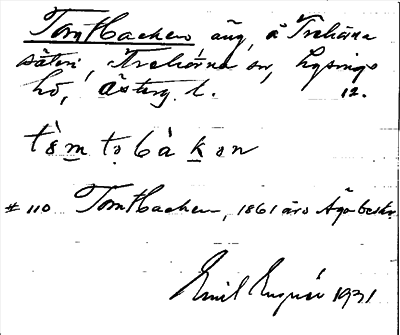 Tomtbacken äng, å Trehörna
säteri, Trehörna sn, Lysings
hd, Österg. l. 12.
tèmtobàkan
# 110 Tomtbacken, 1861 års Ägobeskr.
Emil 1931